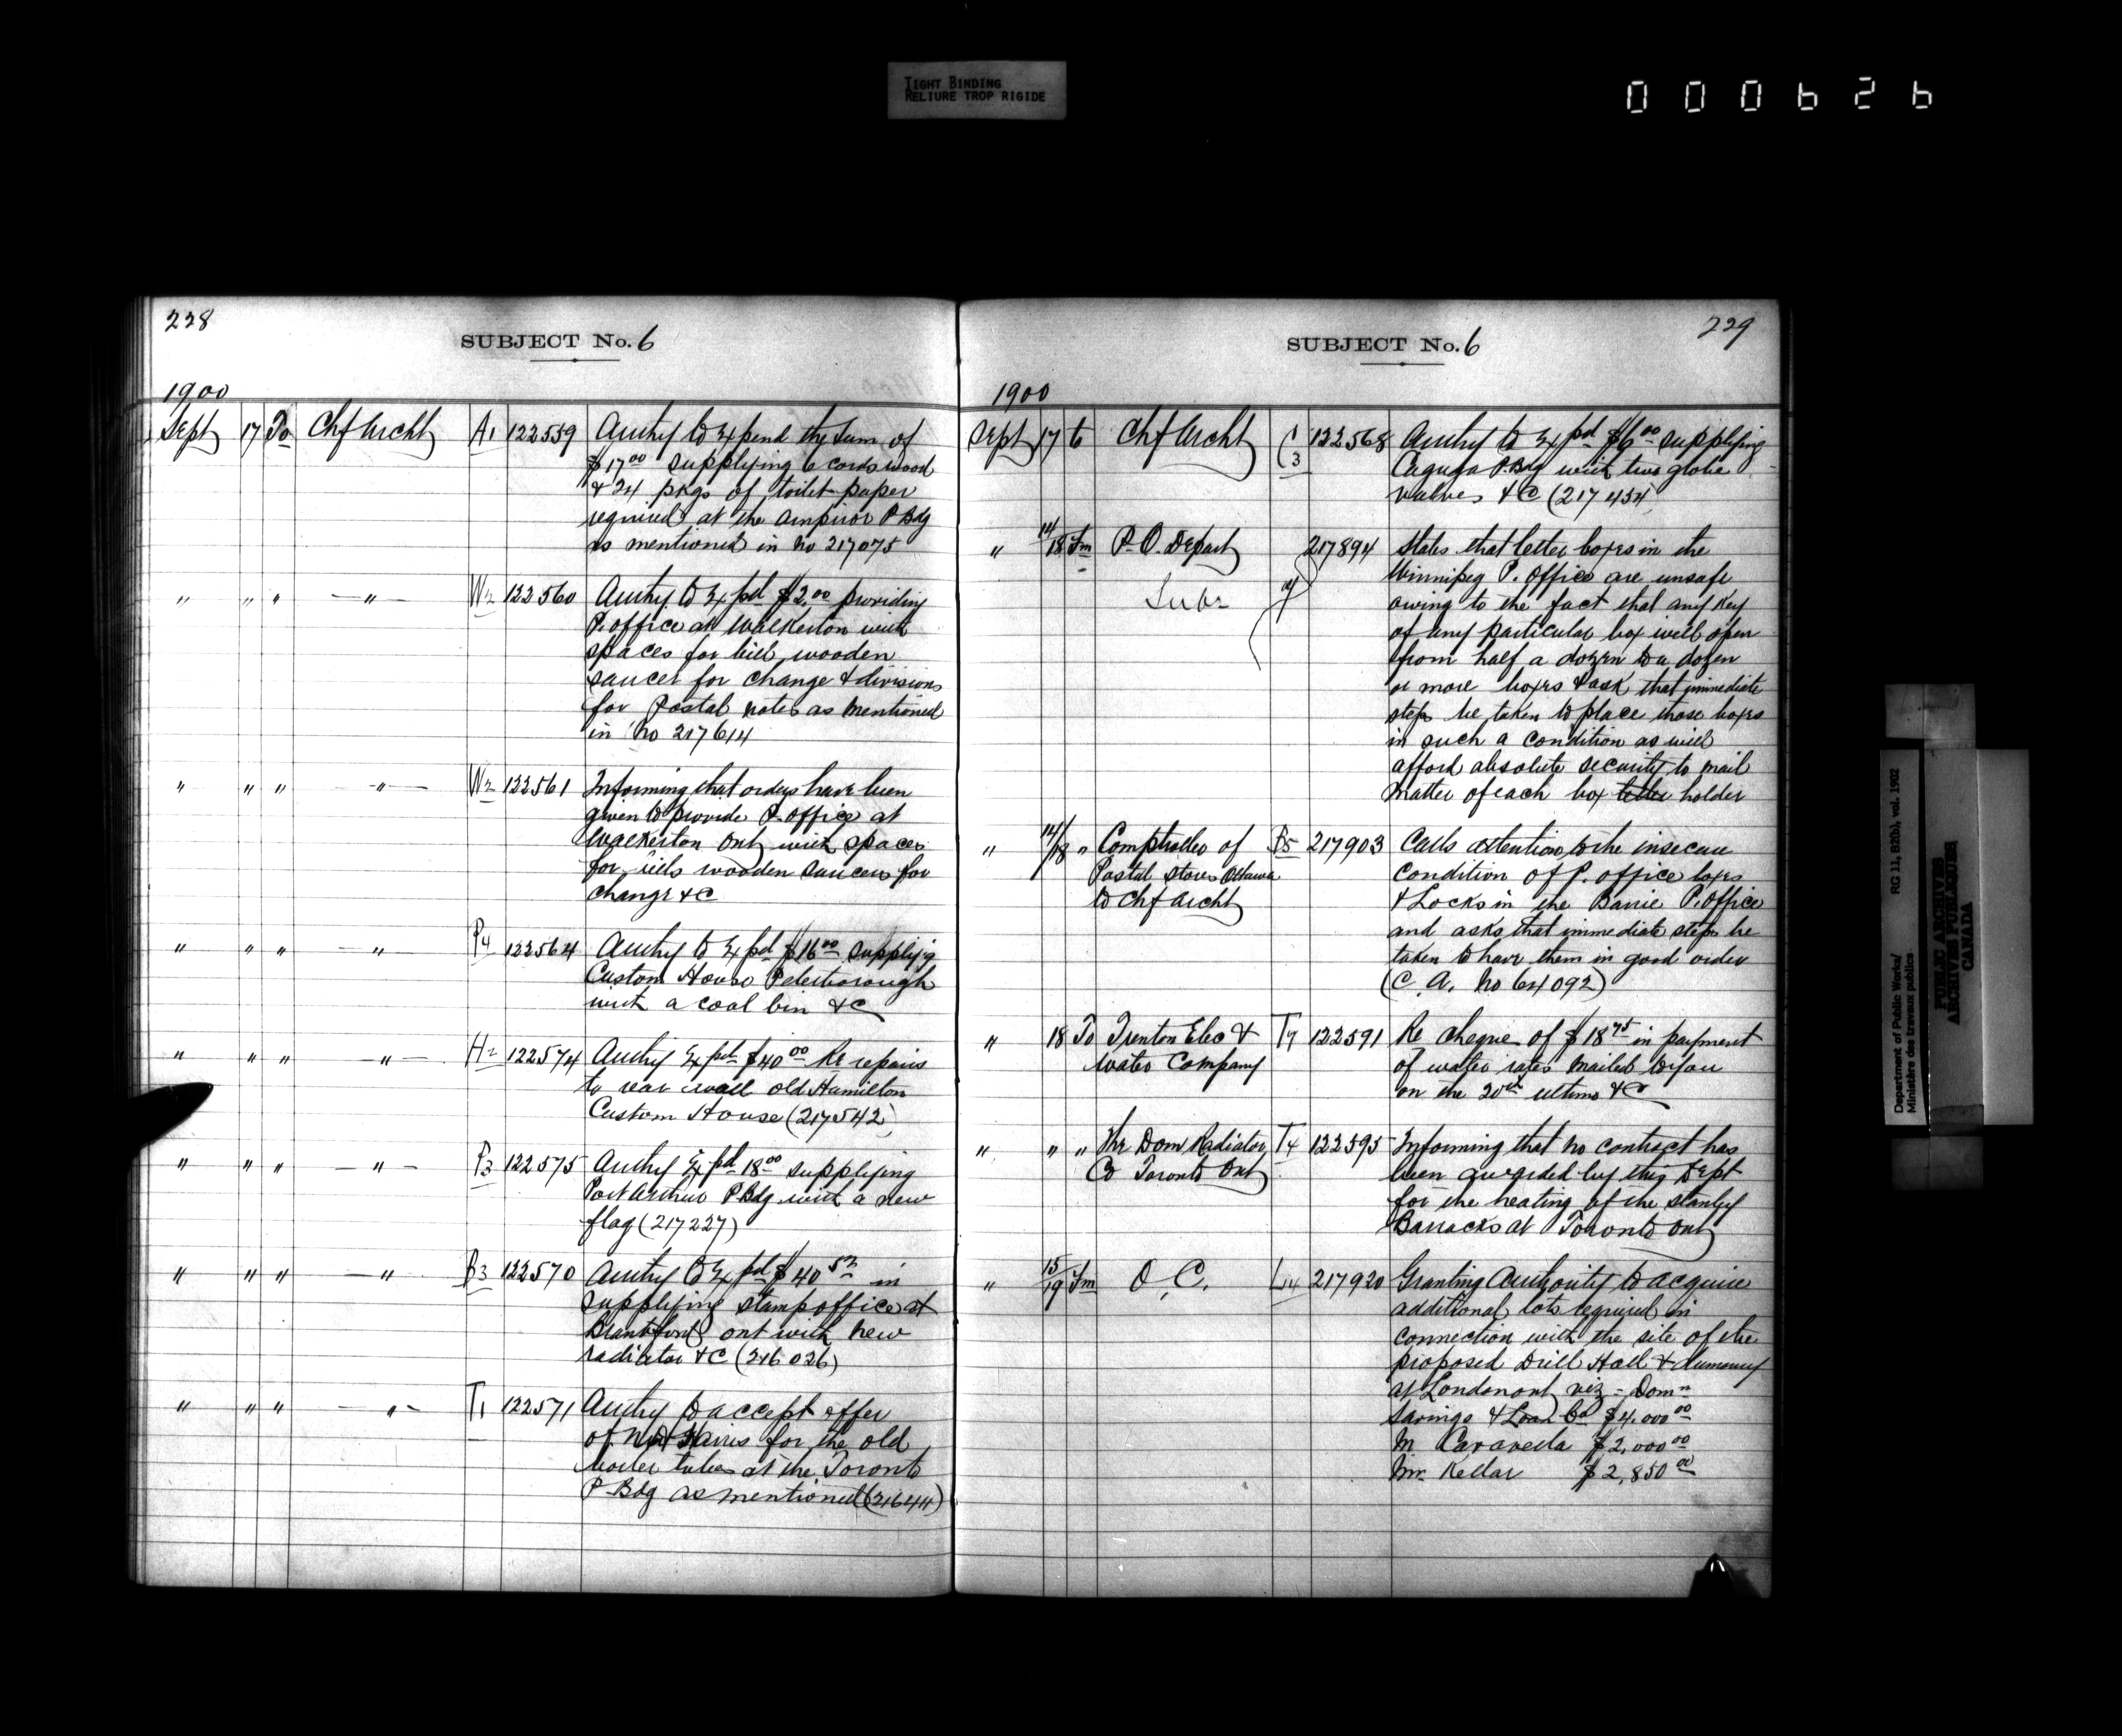 TIGHT BINDING
RELIURE TROP RIGIDE
000626
228
SUBJECT No. 6
1900
Sept 17 To Chf Archt A1 122559 Authy to Expend the sum of
$17.00 supplying 6 cords wood
& 24 pkgs of toilet paper
required at the Arnprior P Bdg
as mentioned in No 217075
" " " — " — W2 122560 Authy to Expd $2.00 providing
P. office at Walkerton with
spaces for bill, wooden
saucer for change & divisions
for Postal notes as mentioned
in No 217614
" " " — " — W2 122561 Informing that orders have been
given to provide P. office at
Walkerton Ont with spaces
for bills wooden saucers for
change &c
" " " — " — P4 122564 Authy to Expd $16.00 supplyig
Custom House Peterborough
with a coal bin &c
" " " — " — H2 122574 Authy Expd $40.00 Re repairs
to rear wall old Hamilton
Custom House (217542)
" " " — " — P3 122575 Authy Expd 18.00 supplying
Port Arthur P Bdg with a new
flag (217227)
" " " — " B3 122570 Authy to Expd $40 in
supplying stamp office at
Brantford Ont with new
radiator &c (216026)
" " " — " — T1 122571 Authy to accept offer
of Harris for the old
boiler tubes at the Toronto
P Bdg as mentioned (216411)
229
SUBJECT No. 6
1900
Sept 17 to Chf Archt C3 122568 Authy to Expd $6.00 supplying
Cayuga P. Bdg with two globe
valves &c (217454)
" 14/18 Fm P. O. Depart 217894 States that letter boxes in the
Winnipeg P. Office are unsafe
owing to the fact that any key
of any particular box will open
from half a dozen to a dozen
or more boxes & ask that immediate
steps be taken to place those boxes
in such a condition as will
afford absolute security to mail
matter of each box letter holder
" 14/18 " Comptroller of B5 217903 Calls attention to the insecure
Postal Stores Ottawa condition of P. office boxes
to Chf Archt & Locks in the Barrie P. Office
and asks that immediate steps be
taken to have them in good order
(C. A. No 64092)
" 18 To Trenton Elec & T7 122591 Re cheque of $18.75 in payment
Water Company of water rates mailed to you
on the 20th ultimo &c
" " " The Dom Radiator T4 122595 Informing that no contract has
Co Toronto Ont been awarded by this Dept
for the heating of the Stanley
Barracks at Toronto Ont
" 15/19 Fm O. C. L4 217920 Granting Authority to acquire
additional lots required in
connection with the site of the
proposed Drill Hall & Armoury
at London Ont viz - Domn
Savings & Loan Co $4,000.00
M. Caravella $2,000.00
Mr. Kellar $2,850.00
Department of Public Works/ RG 11, B2(b), vol. 1902
Ministère des travaux publics
PUBLIC ARCHIVES
ARCHIVES PUBLIQUES
CANADA